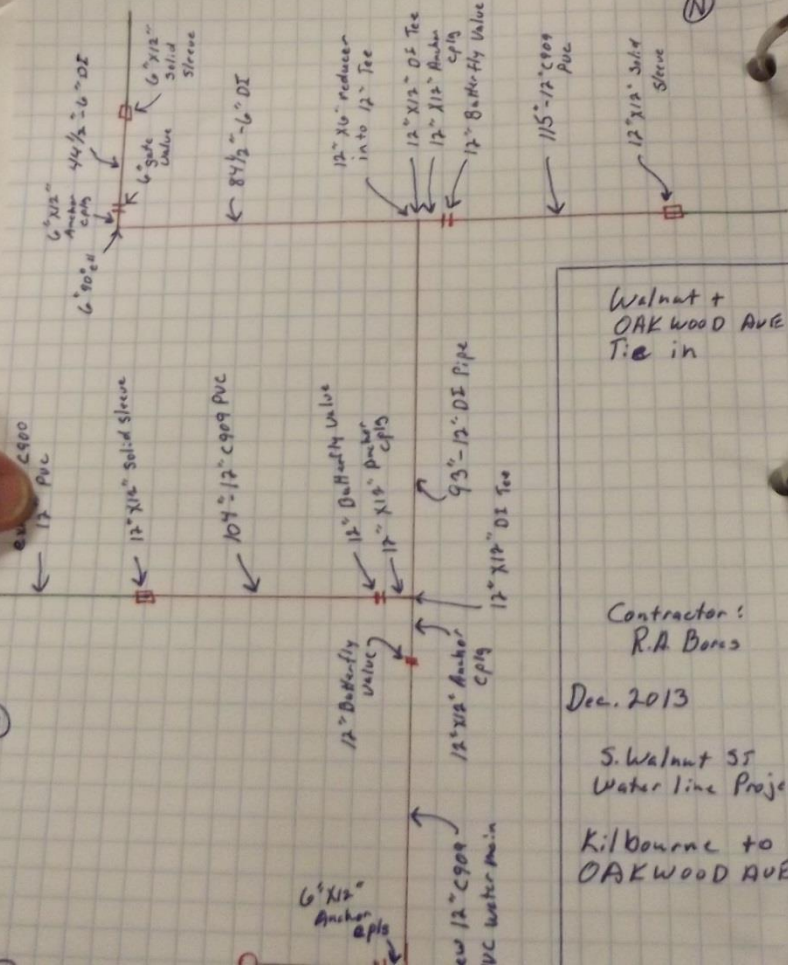 N
6"X12"
Solid
Sleeve
44 1/2"-6" DI
6" gate
Valve
6"X12"
Anchor
cplg
6"90°ell
84 1/2"-6" DI
12"X6" reducer
into 12" Tee
12"X12" DI Tee
12"X12" Anchor
cplg
12" Butterfly Valve
115"-12" C909
PVC
12"X12" Solid
Sleeve
C900
12" PVC
12"X12" Solid Sleeve
104"-12" C909 PVC
12" Butterfly Valve
12"X12" Anchor
cplg
93"-12" DI Pipe
12"X12" DI Tee
12" Butterfly
Valve
12"X12" Anchor
cplg
6"X12"
Anchor
cplg
12" C909
water main
Walnut +
OAKWOOD AVE
Tie in
Contractor:
R.A. Bores
Dec. 2013
S. Walnut ST
Water line
Kilbourne to
OAKWOOD AVE